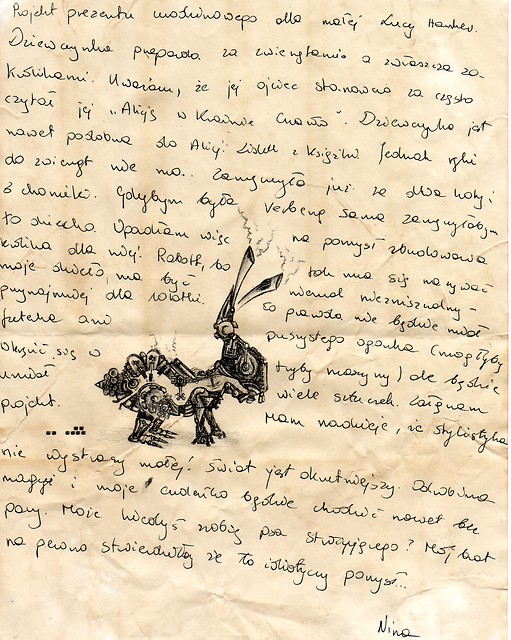 Projekt prezentu urodzinowego dla małej Lucy Hawker.
Dziewczynka przepada za zwierzętami a zwłaszcza za
królikami. Uważam, że jej ojciec stanowczo za często
czytał jej „Alicję w Krainie Czarów". Dziewczynka jest
nawet podobna do Alicji Liddell z książki. Jednak ręki
do zwierząt nie ma... Zamęczyła już ze dwa koty i
3 chomiki. Gdybym była Verbeną sama zamęczyłabym
to dziecko. Wpadłam więc na pomysł zbudowania
królika dla niej. Rabbit, bo tak ma się nazywać
moje dzieło, ma być niemal niezniszczalny -
przynajmniej dla Co prawda nie będzie miał
futerka ani puszystego ogonka (mogłyby
się w tryby maszyny) ale będzie
umiał wiele sztuczek. Załączam
projekt. Mam nadzieję, że stylistyka
nie wystraszy małej! Świat jest okrutniejszy. Odrobina
magyi i moje cudeńko będzie chodzić nawet bez
pary. Może kiedyś zrobię psa ? Mój brat
na pewno stwierdziłby że to idiotyczny pomysł...
Nina